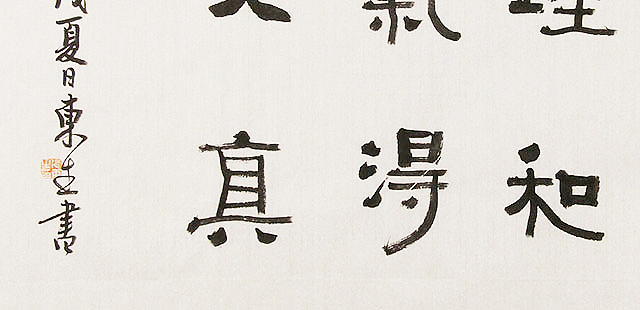 理和
氣得
真
夏日東生書